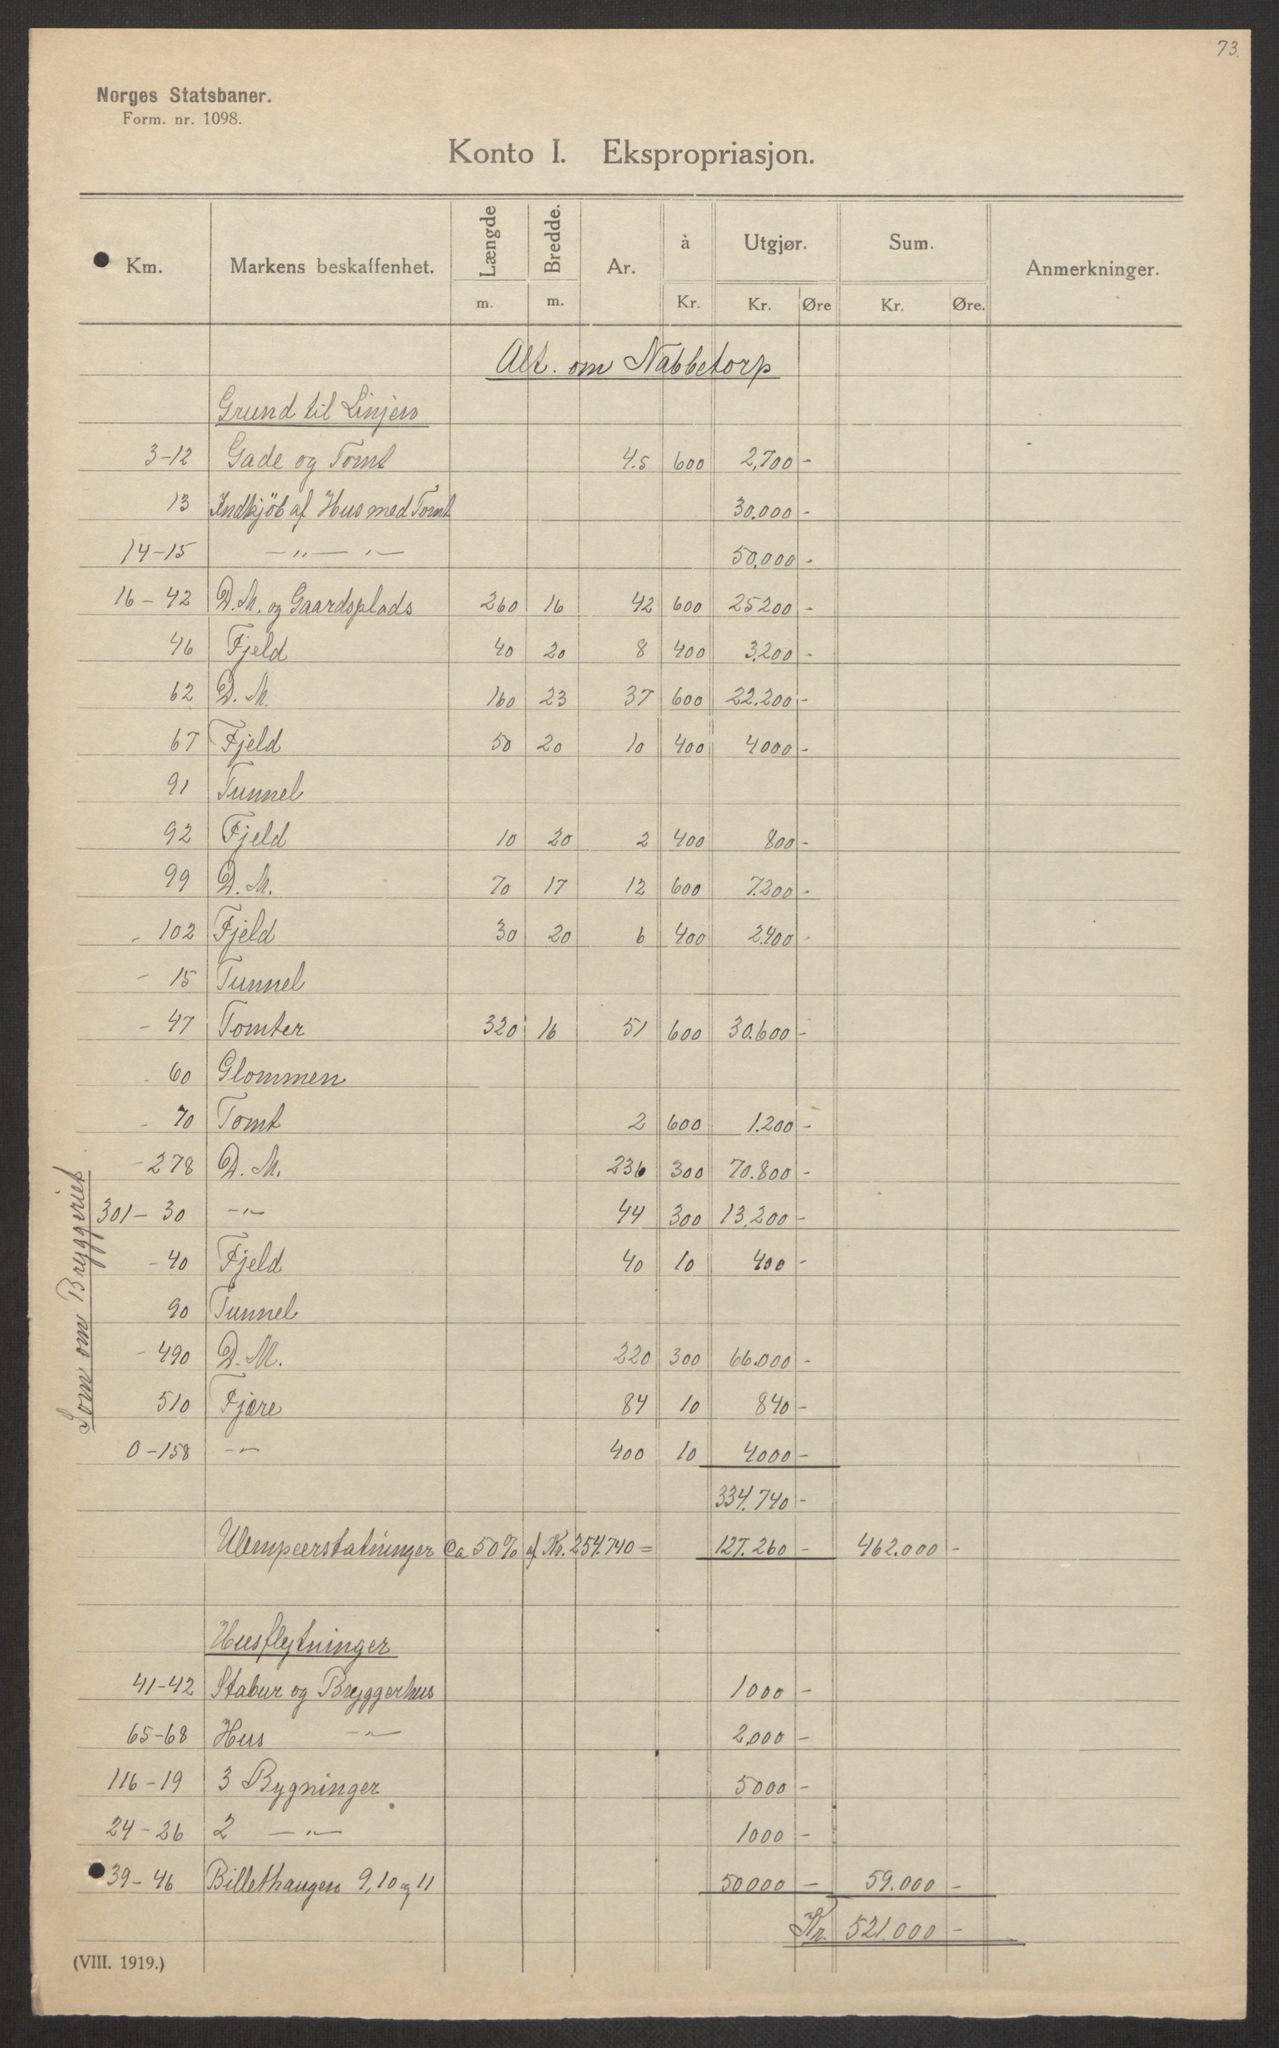 73.
Norges Statsbaner.
Form. nr. 1098.
Konto I. Ekspropriasjon.
Km. Markens beskaffenhet. Længde m. Bredde. m. Ar. à Kr. Utgjør. Kr. Øre Sum. Kr. Øre. Anmerkninger.
Alt. om Nabbetorp
Grund til Linjen
3-12 Gade og Tomt 4.5 600 2,700 -
13 Indkjöb af Hus med Tomt 30.000 -
14-15 -"- -"- 50,000 -
16-42 D.M. og Gaardsplads 260 16 42 600 25200 -
46 Fjeld 40 20 8 400 3,200 -
62 D.M. 160 23 37 600 22.200 -
67 Fjeld 50 20 10 400 4000 -
91 Tunnel
92 Fjeld 10 20 2 400 800 -
99 D.M. 70 17 12 600 7.200 -
- 102 Fjeld 30 20 6 400 2.400 -
- 15 Tunnel
- 47 Tomter 320 16 51 600 30.600 -
- 60 Glommen
- 70 Tomt 2 600 1.200 -
- 278 D.M. 236 300 70.800 -
301-30 -"- 44 300 13.200 -
- 40 Fjeld 40 10 400 -
90 Tunnel
- 490 D.M. 220 300 66.000 -
510 Fjære 84 10 840 -
0-158 -"- 400 10 4000 -
Som om Bryggeriet
334.740 -
Ulempeerstatninger ca 50% af Kr. 254.740 = 127.260 - 462.000 -
Husflytninger
41-42 Stabur og Bryggerhus 1000 -
65-68 Hus -"- 2,000 -
116-19 3 Bygninger 5000 -
24-26 2 -"- 1000 -
39-46 Billethaugen 9,10 og 11 50000 - 59.000 -
Kr. 521.000 -
(VIII. 1919.)